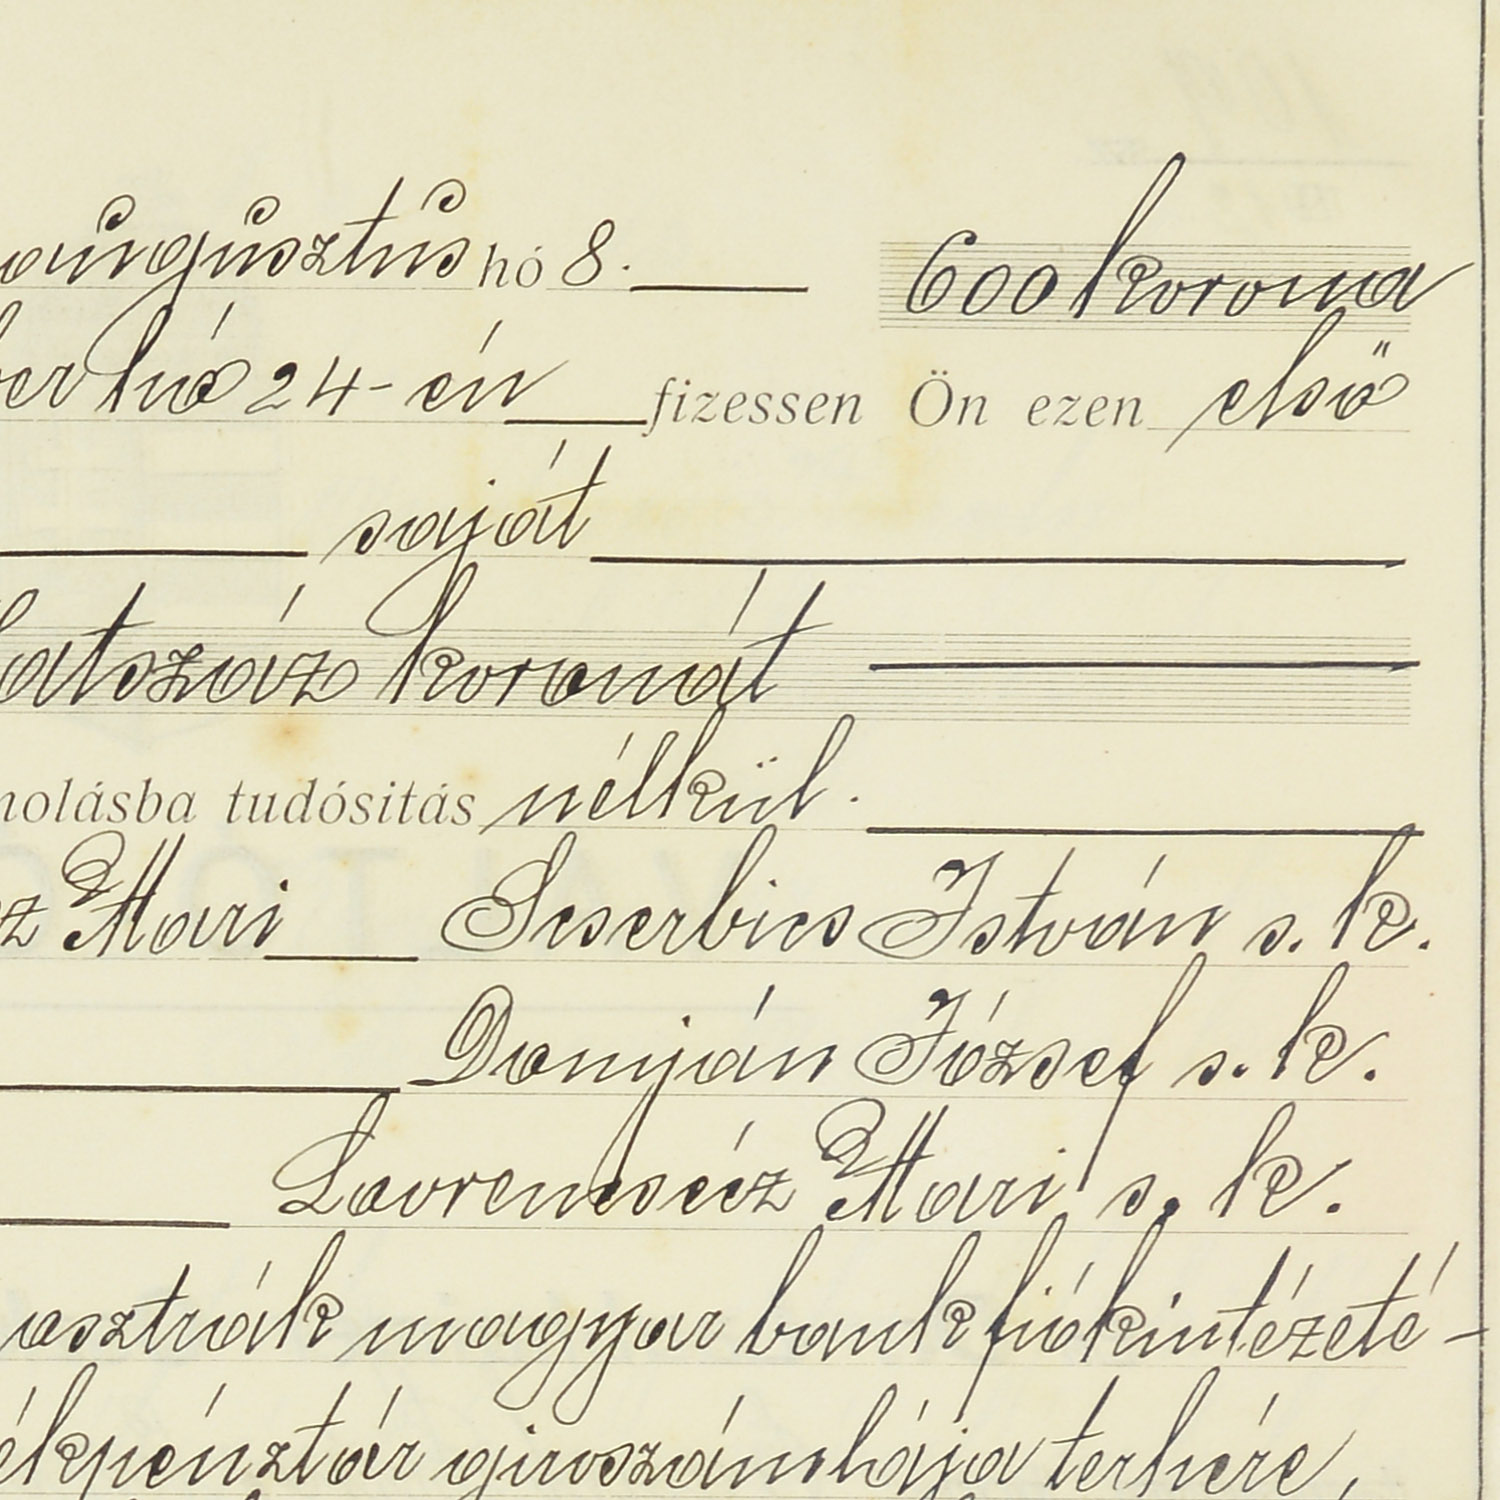 augusztus hó 8. 600 korona
ber hó 24-én fizessen Ön ezen első
saját
hatszáz koronát
molásba tudósítás nélkül.
cz Mari Scserbics István s. k.
Domján József s. k.
Lavrencsécz Mari s. k.
osztrák magyar bank fiókintézeté-
ékpénztár giroszámlája terhére,